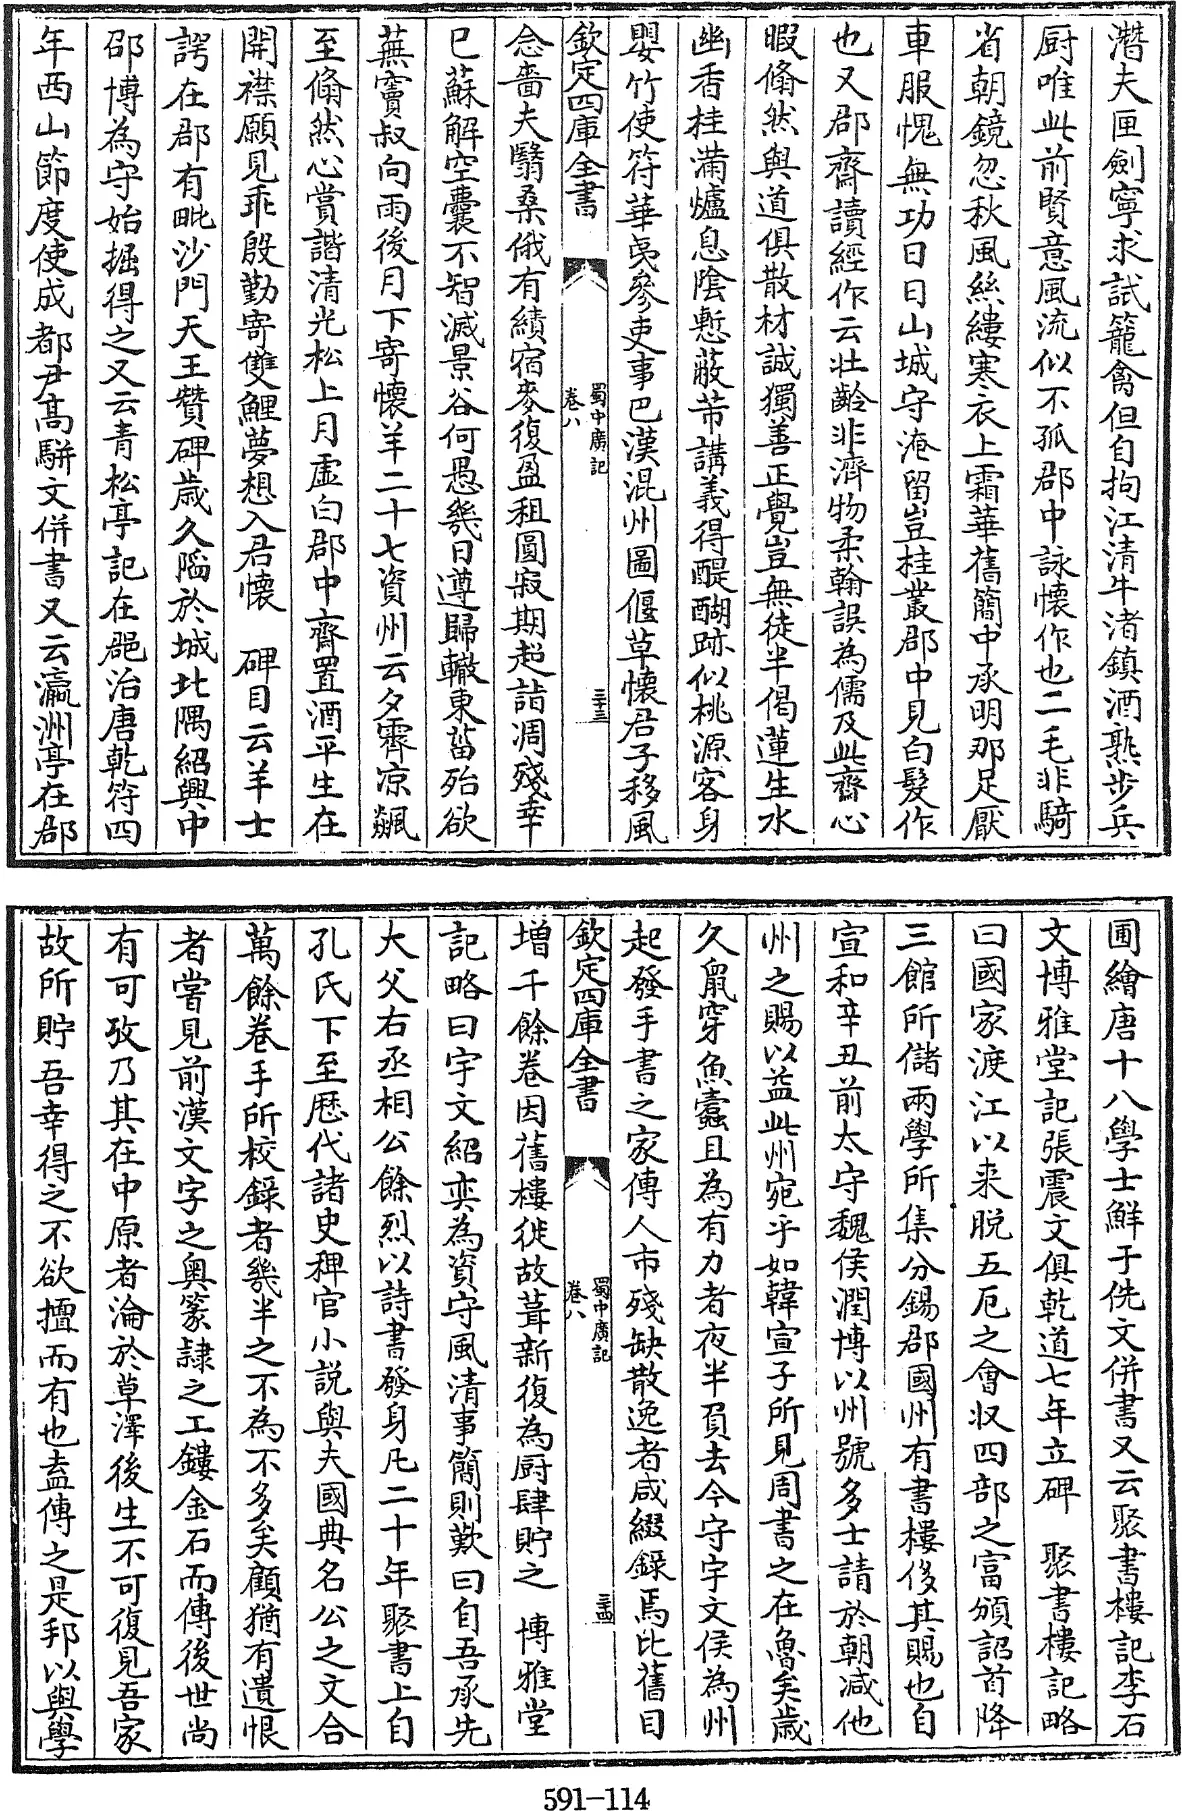 潛夫匣劍寧求試籠禽但自拘江清牛渚鎮酒熟步兵
厨唯此前賢意風流似不孤郡中詠懷作也二毛非騎
省朝鏡忽秋風絲縷寒衣上霜華舊簡中承明那足厭
車服愧無功日日山城守淹留豈桂叢郡中見白髮作
也又郡齋讀經作云壮齡非濟物柔翰誤為儒及此齋心
暇翛然與道俱散材誠獨善正覺豈無徒半偈蓮生水
幽香桂滿爐息陰慙蔽芾講義得醍醐跡似桃源客身
嬰竹使符華夷參吏事巴漢混州圖偃草懷君子移風
欽定四庫全書
蜀中廣記
卷八
三十三
念嗇夫翳桑俄有績宿麥復盈租圓寂期超詣凋殘幸
已蘇解空囊不智滅景谷何愚幾日遵歸轍東菑殆欲
蕪竇叔向雨後月下寄懷羊二十七資州云夕霽凉飆
至翛然心賞諧清光松上月虚白郡中齋置酒平生在
開襟願見乖殷勤寄雙鯉夢想入君懷　碑目云羊士
諤在郡有毗沙門天王贊碑歲久陷於城北隅紹興中
邵博為守始掘得之又云青松亭記在郡治唐乾符四
年西山節度使成都尹髙駢文併書又云瀛洲亭在郡
圃繪唐十八學士鮮于侁文併書又云聚書樓記李石
文博雅堂記張震文俱乾道七年立碑　聚書樓記略
曰國家渡江以来脱五厄之會収四部之富頒詔首降
三館所儲兩學所集分錫郡國州有書樓侈其賜也自
宣和辛丑前太守魏侯潤博以州號多士請於朝减他
州之賜以益此州宛乎如韓宣子所見周書之在魯矣歲
久鼠穿魚蠹且為有力者夜半負去今守宇文侯為州
起發手書之家傳人市殘缺散逸者咸綴錄焉比舊目
欽定四庫全書
蜀中廣記
卷八
三十四
增千餘卷因舊樓徙故葺新復為厨肆貯之　博雅堂
記略曰宇文紹奕為資守風清事簡則歎曰自吾承先
大父右丞相公餘烈以詩書發身凡二十年聚書上自
孔氏下至歴代諸史稗官小説與夫國典名公之文合
萬餘卷手所校錄者幾半之不為不多矣顧猶有遺恨
者嘗見前漢文字之奥篆隷之工鏤金石而傳後世尚
有可攷乃其在中原者淪於草澤後生不可復見吾家
故所貯吾幸得之不欲擅而有也盍傳之是邦以與學
591-114